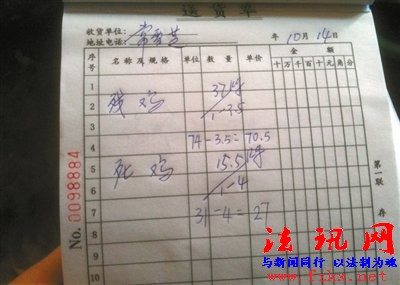 送货单
收货单位: 常香芝
地址电话: 年 10 月 14 日
序号 名称及规格 单位 数量 单价 金额
十 万 千 百 十 元 角 分
1 37
2 残鸡 1-3.5
3
4 74-3.5=70.5
5 死鸡 15.5
6 1-4
7 31-4=27
8
9
10
No. 0098884
第一联
存
法讯网
与新闻同行 以法制为魂